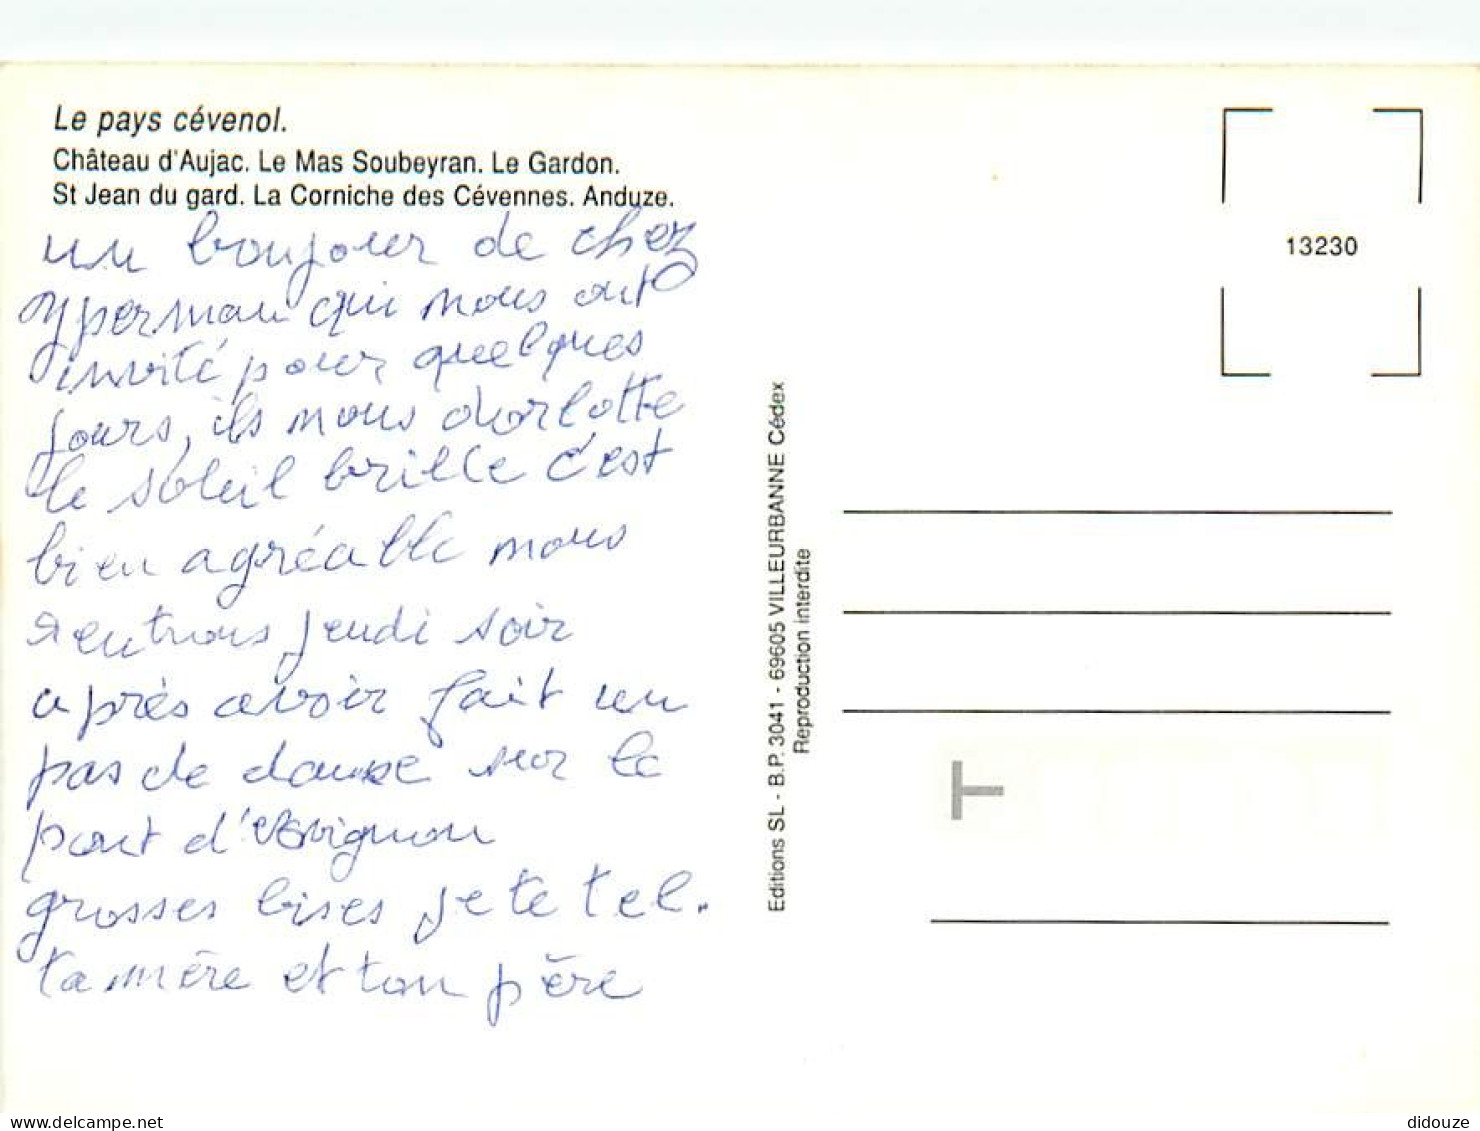 Le pays cévenol.
Château d'Aujac. Le Mas Soubeyran. Le Gardon.
St Jean du gard. La Corniche des Cévennes. Anduze.
un bonjour de chez
yperman qui nous ont
invité pour quelques
jours, ils nous dorlotte
le soleil brille c'est
bien agréable nous
rentrons jeudi soir
après avoir fait un
pas de danse sur le
pont d'Avignon
grosses bises je te tel.
ta mère et ton père
Editions SL - B.P. 3041 - 69605 VILLEURBANNE Cédex
Reproduction interdite
13230
T
delcampe.net
didouze